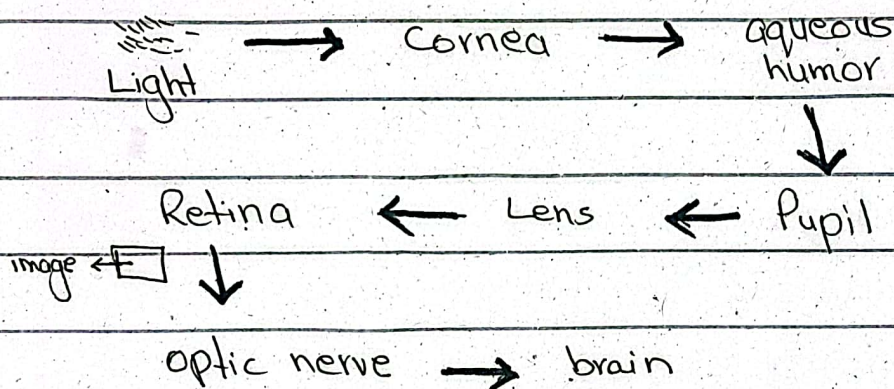 Light → Cornea → aqueous humor
Retina ← Lens ← Pupil
image
optic nerve → brain